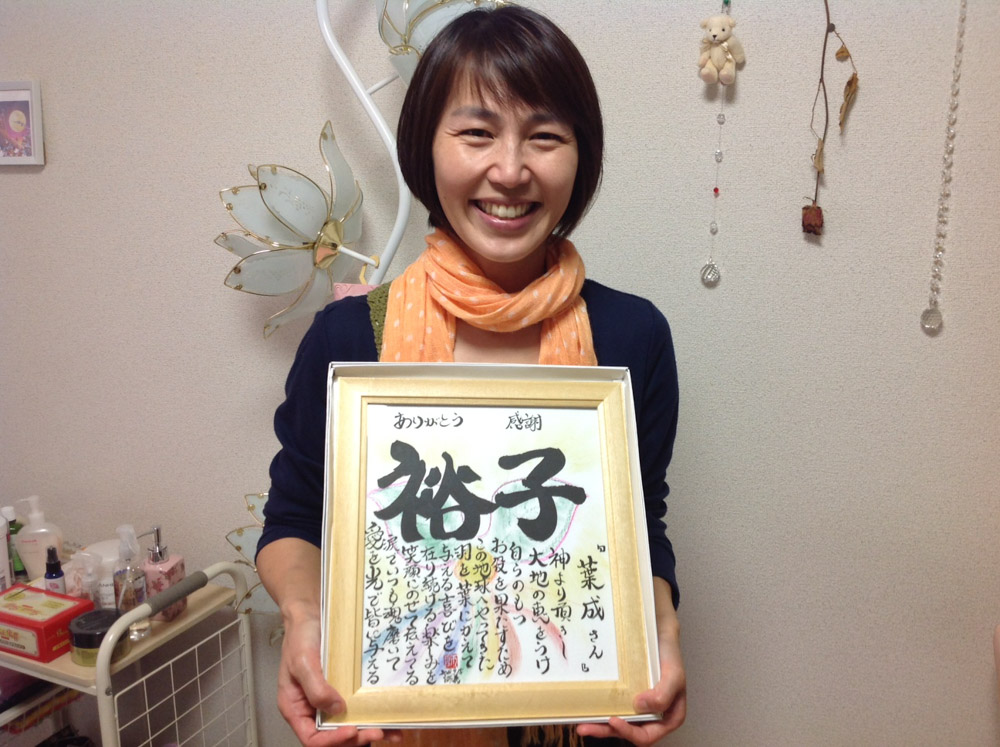 ありがとう 感謝
裕子
『葉成さん』
神より頂きし
大地の恵をうけ
自らのもつ
お役を果たすため
この地球へやってきた
羽を葉にかえて
与える喜びを
在り続ける楽しみを
笑顔にのせて伝えてる
いつも魂磨いて
愛を光で皆に与える